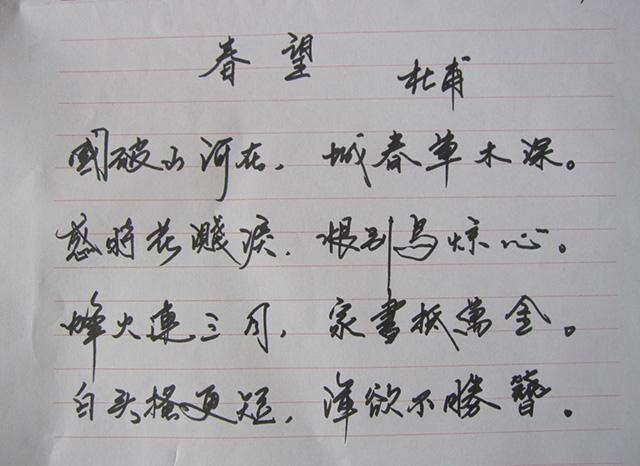 春望
杜甫
國破山河在，城春草木深。
感時花濺淚，恨别鸟惊心。
烽火連三月，家書抵萬金。
白头搔更短，渾欲不勝簪。